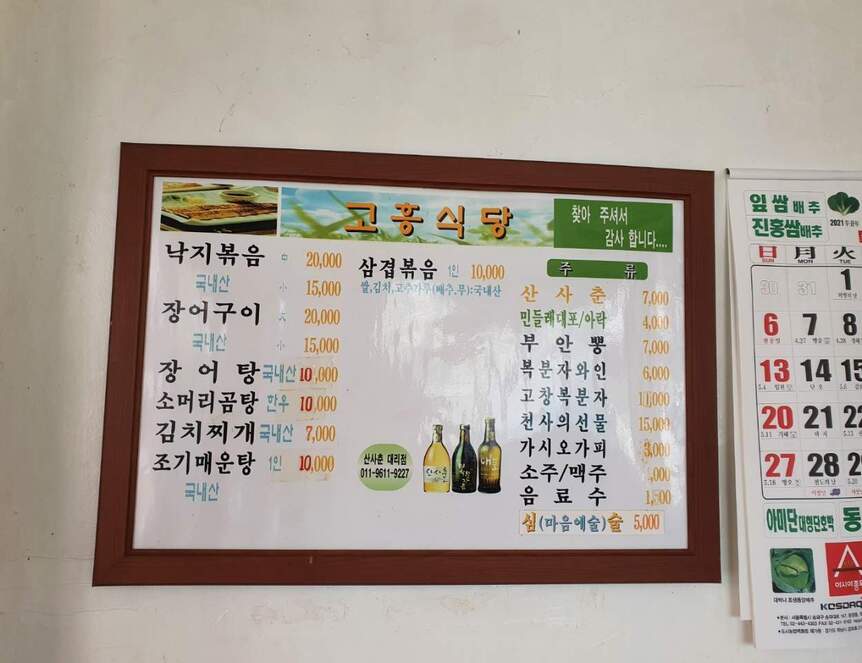 고흥식당
찾아 주셔서
감사 합니다....
낙지볶음 中 20,000
국내산 小 15,000
장어구이 大 20,000
국내산 小 15,000
장어탕 국내산 10,000
소머리곰탕 한우 10,000
김치찌개 국내산 7,000
조기매운탕 1인 10,000
국내산
삼겹볶음 1인 10,000
쌀,김치,고추가루(배추.무):국내산
주 류
산사춘 7,000
민들레대포/아락 4,000
부안뽕 7,000
복분자와인 6,000
고창복분자 11,000
천사의선물 15,000
가시오가피 3,000
소주/맥주 ,000
음료수 1,500
심(마음에술)술 5,000
산사춘 대리점
011-9611-9227
산사춘
잎쌈배추
진홍쌈배추
2021
日 月 火
SUN MON TUE
30 31 1
6 7 8
13 14 15
20 21 22
27 28 29
아미단 대형단호박 동
아시아종묘
KOSDAQ